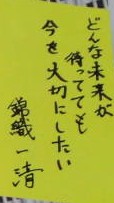 どんな未来が
待ってても
今を大切にしたい
錦織一清